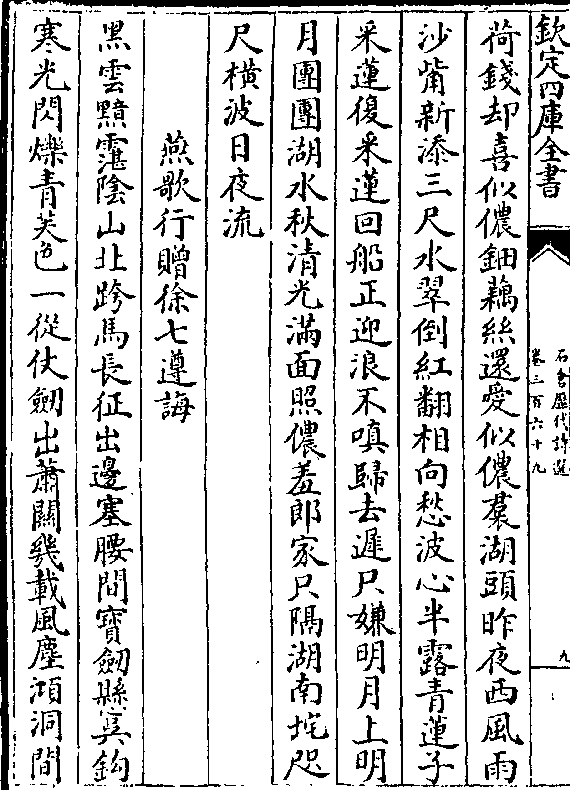 欽定四庫全書
石倉歷代詩選
卷三百六十九
九
荷錢却喜似儂鈿藕絲還愛似儂裠湖頭昨夜西風雨
沙觜新添三尺水翠倒紅翻相向愁波心半露青蓮子
采蓮復采蓮回船正迎浪不嗔歸去遲只嫌明月上明
月團團湖水秋清光滿面照儂羞郎家只隔湖南垞咫
尺橫波日夜流
燕歌行贈徐七遵誨
黑雲黯霮陰山北跨馬長征出邊塞腰間寶劒縣寘鈎
寒光閃爍青芙色一從仗劒出蕭關幾載風塵澒洞間